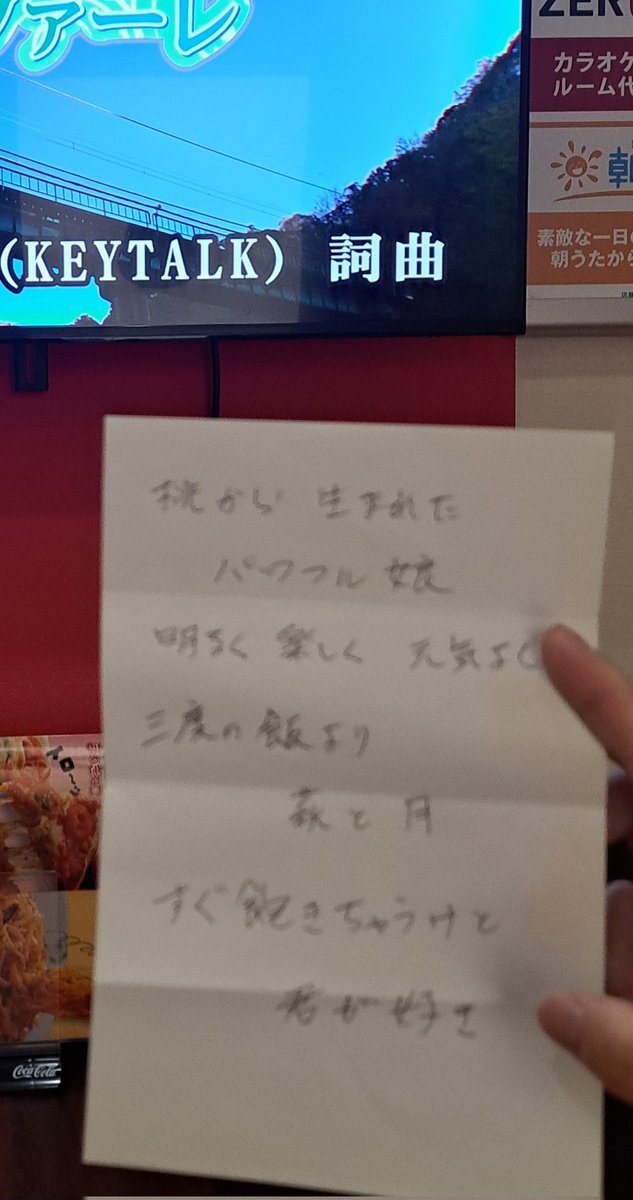 ファーレ
(KEYTALK) 詞曲
カラオケ
ルーム代
朝
素敵な一日の
朝うたから
桃から 生まれた
パワフル 娘
明るく 楽しく 元気よく
三度の飯より
萩と月
すぐ飽きちゃうけど
君が好き
Coca-Cola